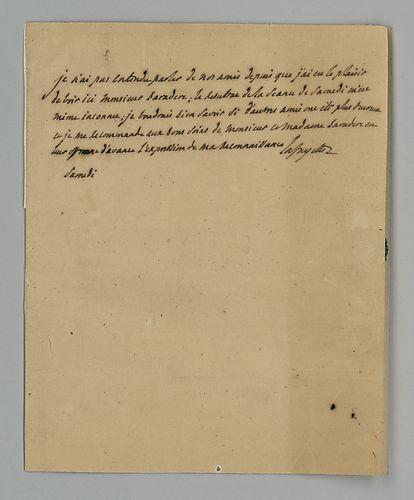 je n'ai pas entendu parler de nos amis depuis que j'ai eu le plaisir
de voir ici monsieur ; le resultat de la seance de Samedi m'est
même inconnu ; je voudrois bien savoir si d'autres amis ont été plus heureux
et je me recommande aux bons soins de monsieur et madame en
leur offrant d'avance l'expression de ma reconnaissance Lafayette
Samedi